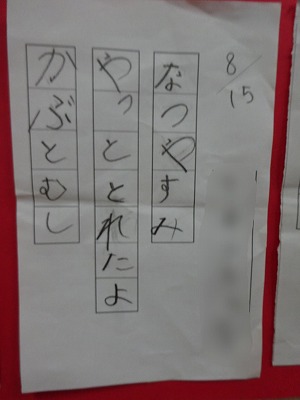 8/15
なつやすみ
やっととれたよ
かぶとむし